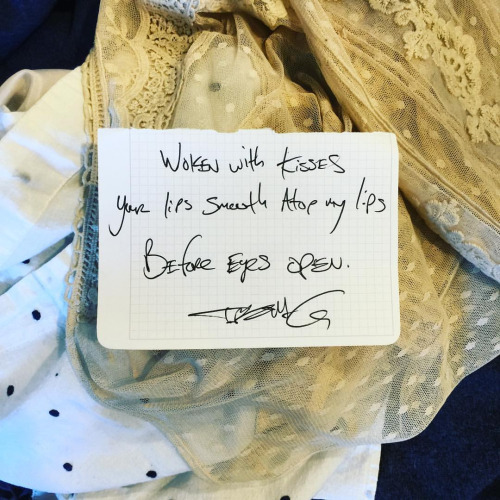 WOKEN with KISSES
your lips smooth Atop my lips
BEFORE EYES OPEN.